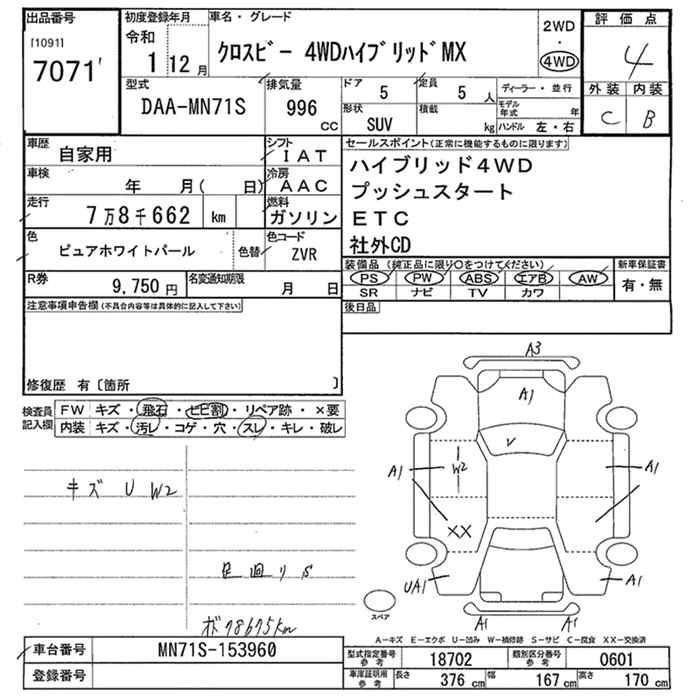 出品番号
[1091]
7071
初度登録年月
令和
1 12月
車名・グレード
クロスビー 4WDハイブリッドMX
2WD
・
4WD
評価点
4
外装 内装
C B
型式
DAA-MN71S
排気量
996
CC
ドア
5
定員
5人
形状
SUV
積載
kg
ディーラー・並行
モデル年式 年
ハンドル 左・右
車歴
自家用
シフト
IAT
車検
年 月( 日)
冷房
AAC
走行
7万8千662 km
燃料
ガソリン
色
ピュアホワイトパール
色替
色コード
ZVR
R券
9,750円
名変通知期限
月 日
セールスポイント(正常に機能するものに限ります)
ハイブリッド4WD
プッシュスタート
ETC
社外CD
装備品(純正品に限り○をつけてください)
PS PW ABS エアB AW
SR ナビ TV カワ
新車保証書
有・無
後日品
注意事項申告欄(不具合内容等は具体的に記入して下さい)
修復歴 有〔箇所 〕
検査員記入欄
FW キズ・飛石・ヒビ割・リペア跡・×要
内装 キズ・汚レ・コゲ・穴・スレ・キレ・破レ
キズ U W2
足廻りS
ボ78675km
A3
A1
V
A1
W2
A1
XX
UA1
A1
スペア
A1
A1
A-キズ E-エクボ U-凹み W-補修跡 S-サビ C-腐食 XX-交換済
車台番号
MN71S-153960
登録番号
型式指定番号 参考
18702
類別区分番号 参考
0601
車庫証明用 参考
長さ 376 cm 幅 167 cm 高さ 170 cm